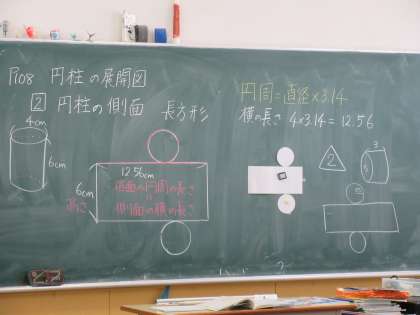 P108 円柱の展開図
2 円柱の側面 長方形
4cm
6cm
12.56cm
6cm
高さ
底面の円周の長さ
=
側面の横の長さ
円周=直径×3.14
横の長さ 4×3.14=12.56
2
3